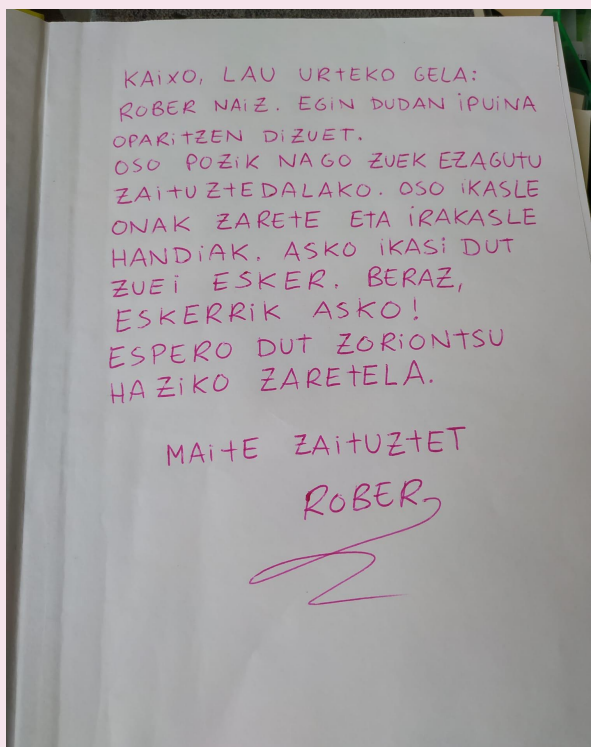 KAIXO, LAU URTEKO GELA:
ROBER NAIZ. EGIN DUDAN IPUINA
OPARITZEN DIZUET.
OSO POZIK NAGO ZUEK EZAGUTU
ZAITUZTEDALAKO. OSO IKASLE
ONAK ZARETE ETA IRAKASLE
HANDIAK. ASKO IKASI DUT
ZUEI ESKER. BERAZ,
ESKERRIK ASKO!
ESPERO DUT ZORIONTSU
HAZIKO ZARETELA.
MAITE ZAITUZTET
ROBER